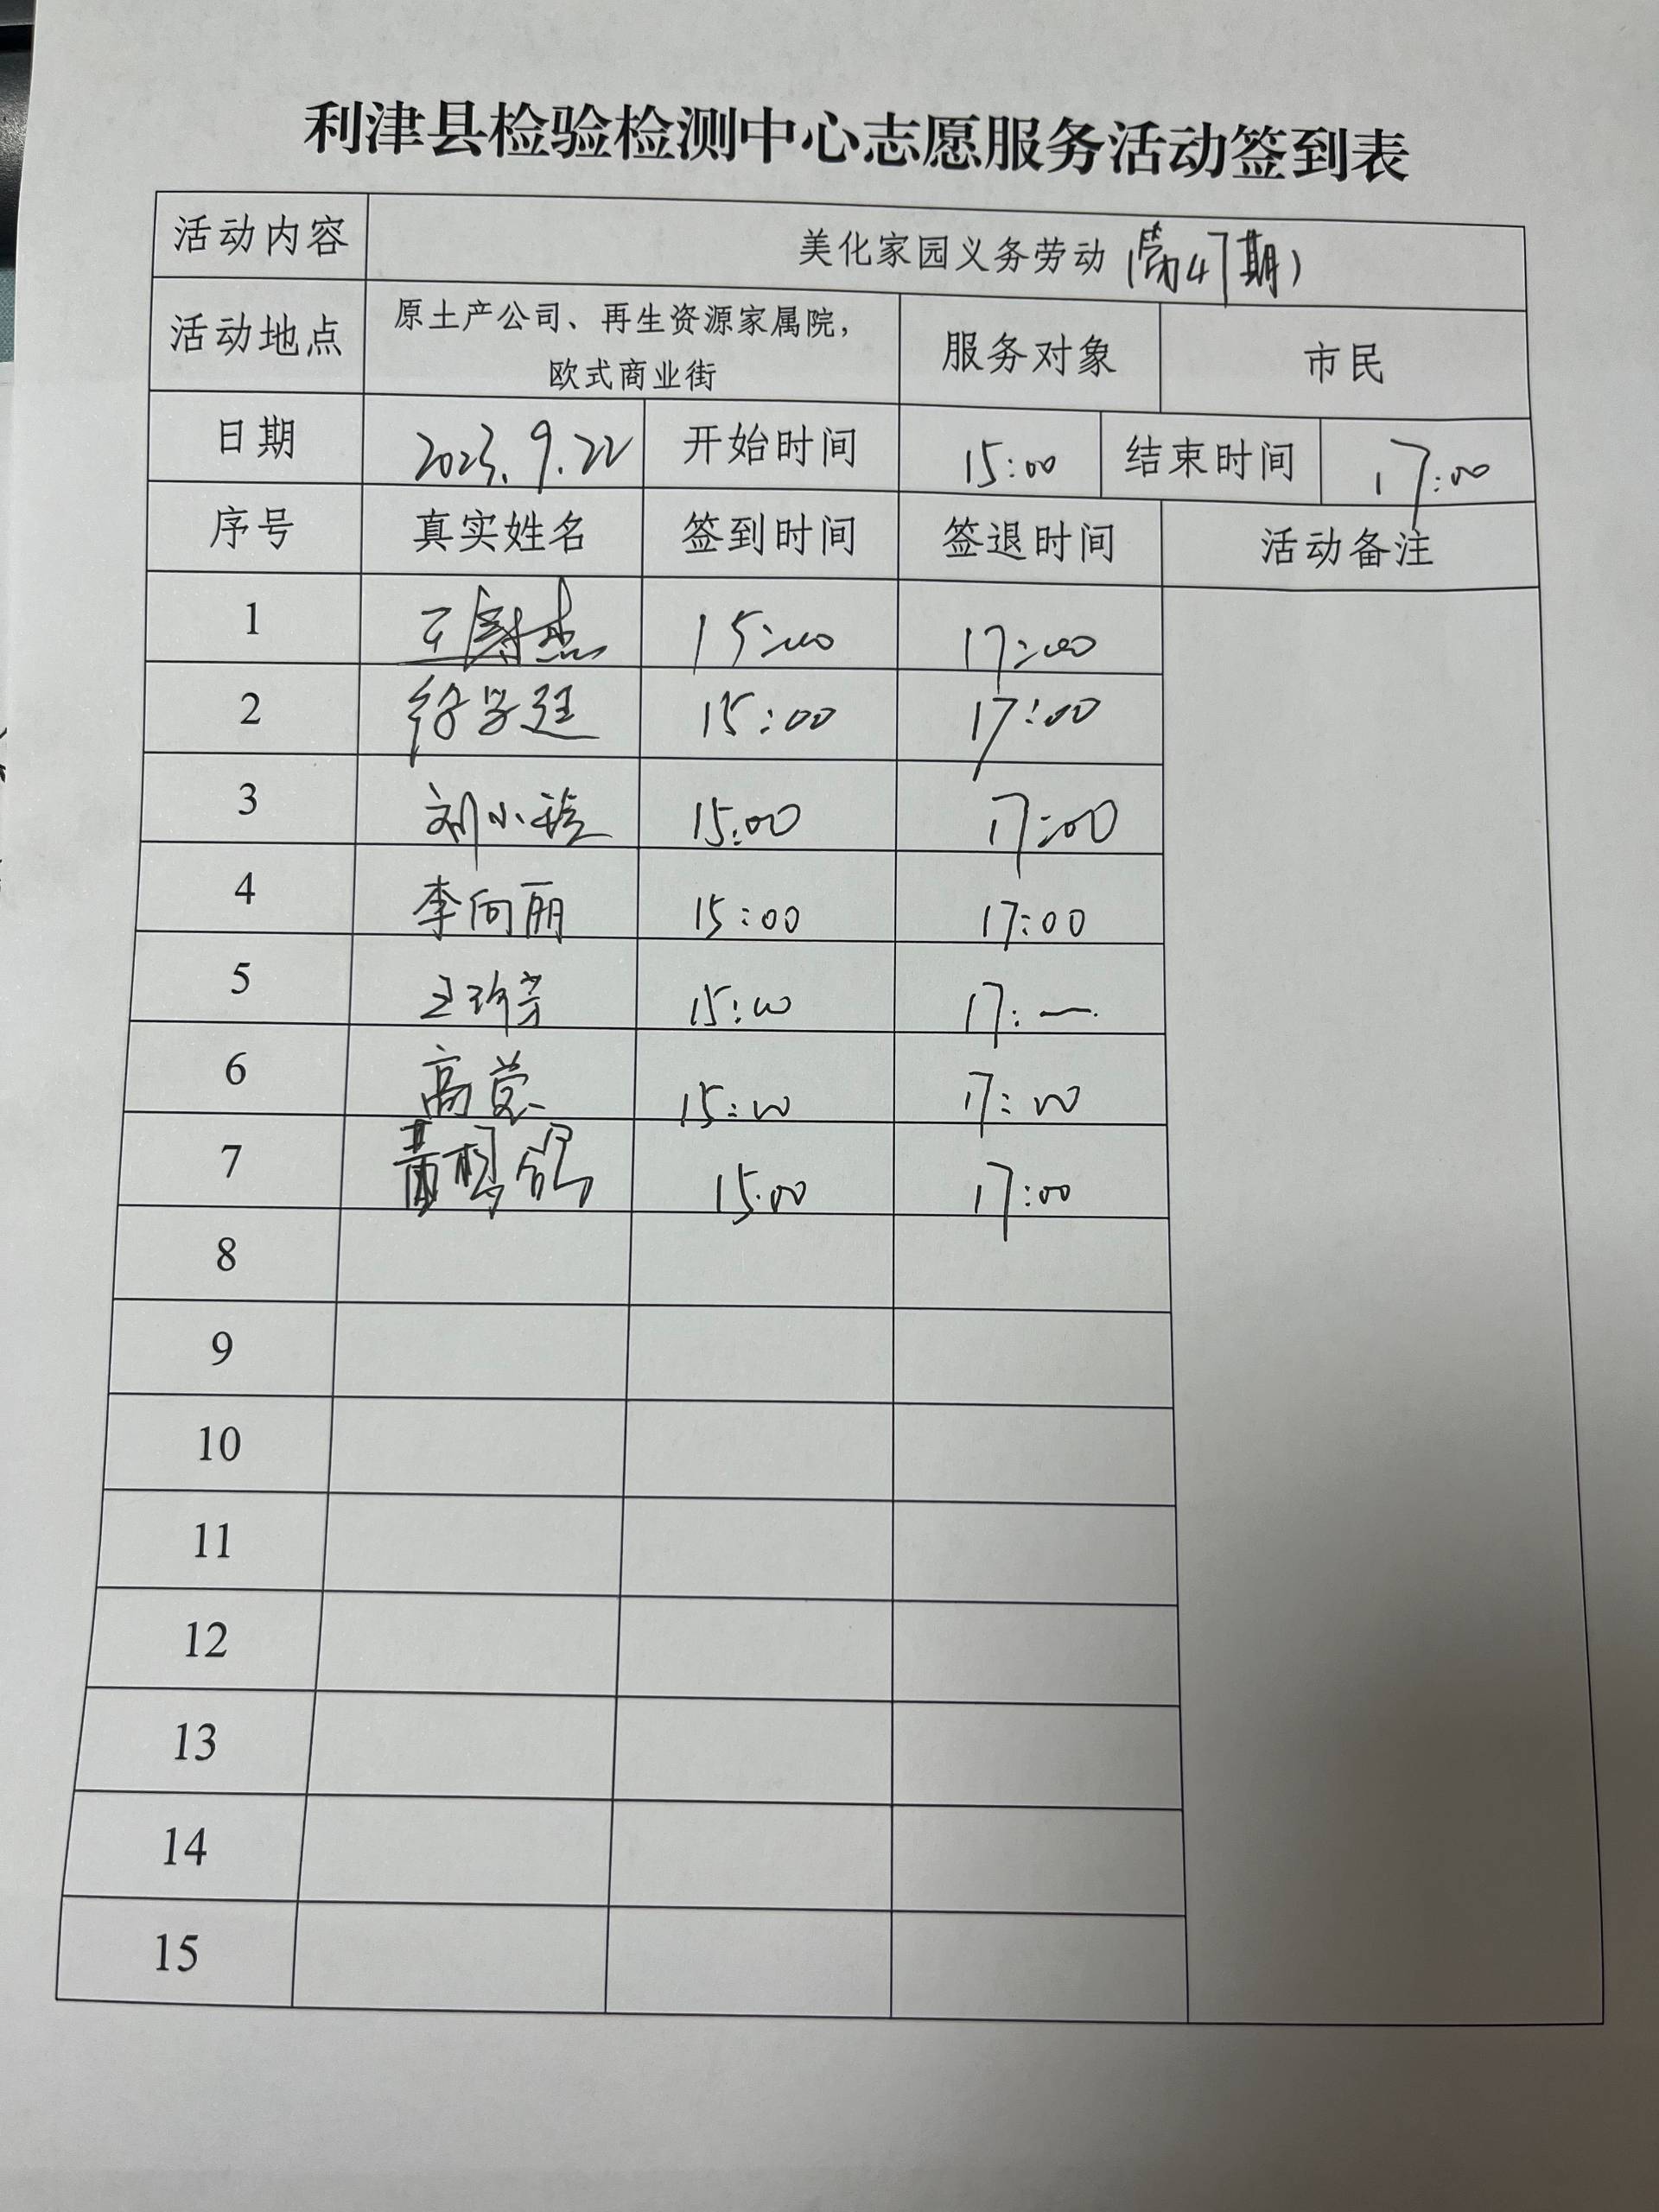 利津县检验检测中心志愿服务活动签到表
活动内容 美化家园义务劳动（第47期）
活动地点 原土产公司、再生资源家属院，
欧式商业街 服务对象 市民
日期 2023.9.22 开始时间 15:00 结束时间 17:00
序号 真实姓名 签到时间 签退时间 活动备注
1 15:00 17:00
2 15:00 17:00
3 刘小 15:00 17:00
4 李向丽 15:00 17:00
5 15:00 17:—
6 高莹 15:00 17:00
7 15:00 17:00
8
9
10
11
12
13
14
15